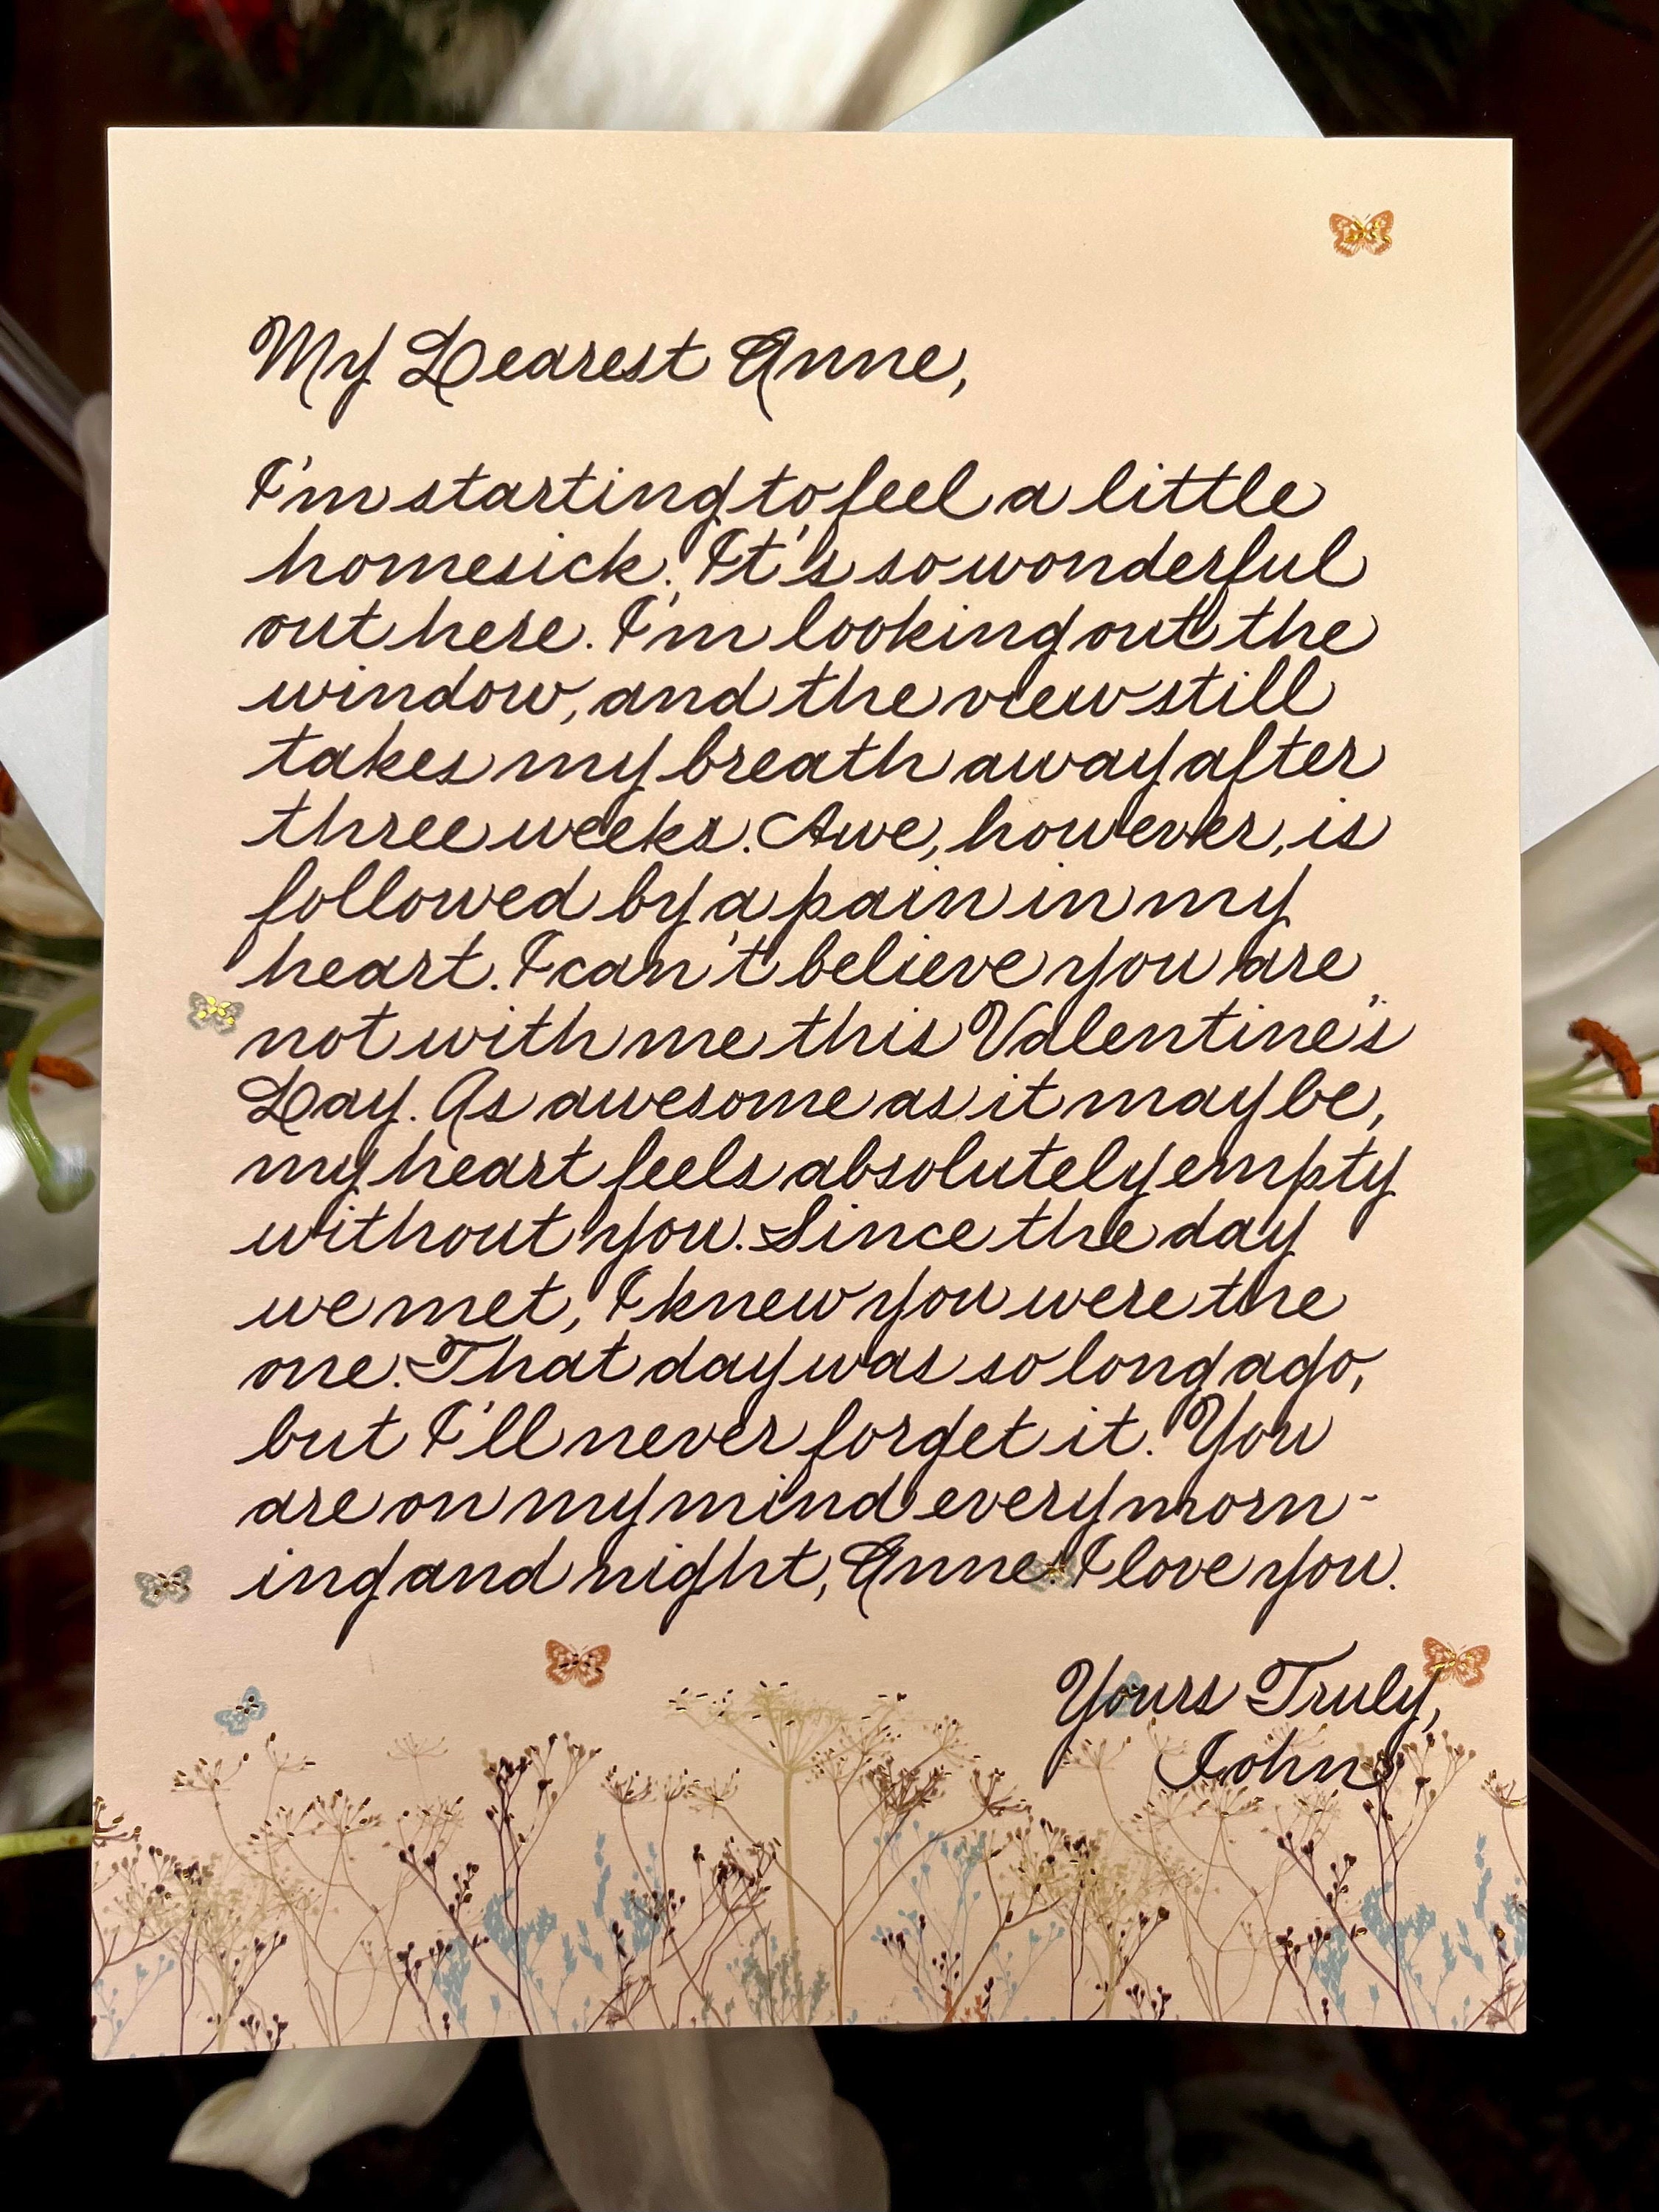 My Dearest Anne,
I'm starting to feel a little
homesick. It's so wonderful
out here. I'm looking out the
window, and the view still
takes my breath away after
three weeks. Awe, however, is
followed by a pain in my
heart. I can't believe you are
not with me this Valentine's
Day. As awesome as it may be,
my heart feels absolutely empty
without you. Since the day
we met, I knew you were the
one. That day was so long ago,
but I'll never forget it. You
are on my mind every morn-
ing and night, Anne. I love you.
Yours Truly,
John